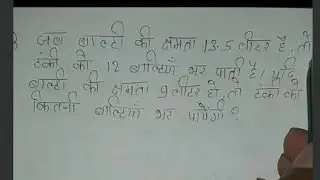 जब बाल्टी की क्षमता 13.5 लीटर है, तो
टंकी को 12 बाल्टियाँ भर पाती है। यदि
बाल्टी की क्षमता 9 लीटर हो, तो टंकी को
कितनी बाल्टियाँ भर पायेंगी ?